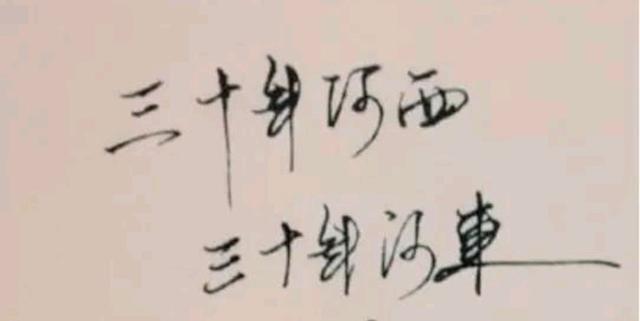 三十年河西
三十年河東